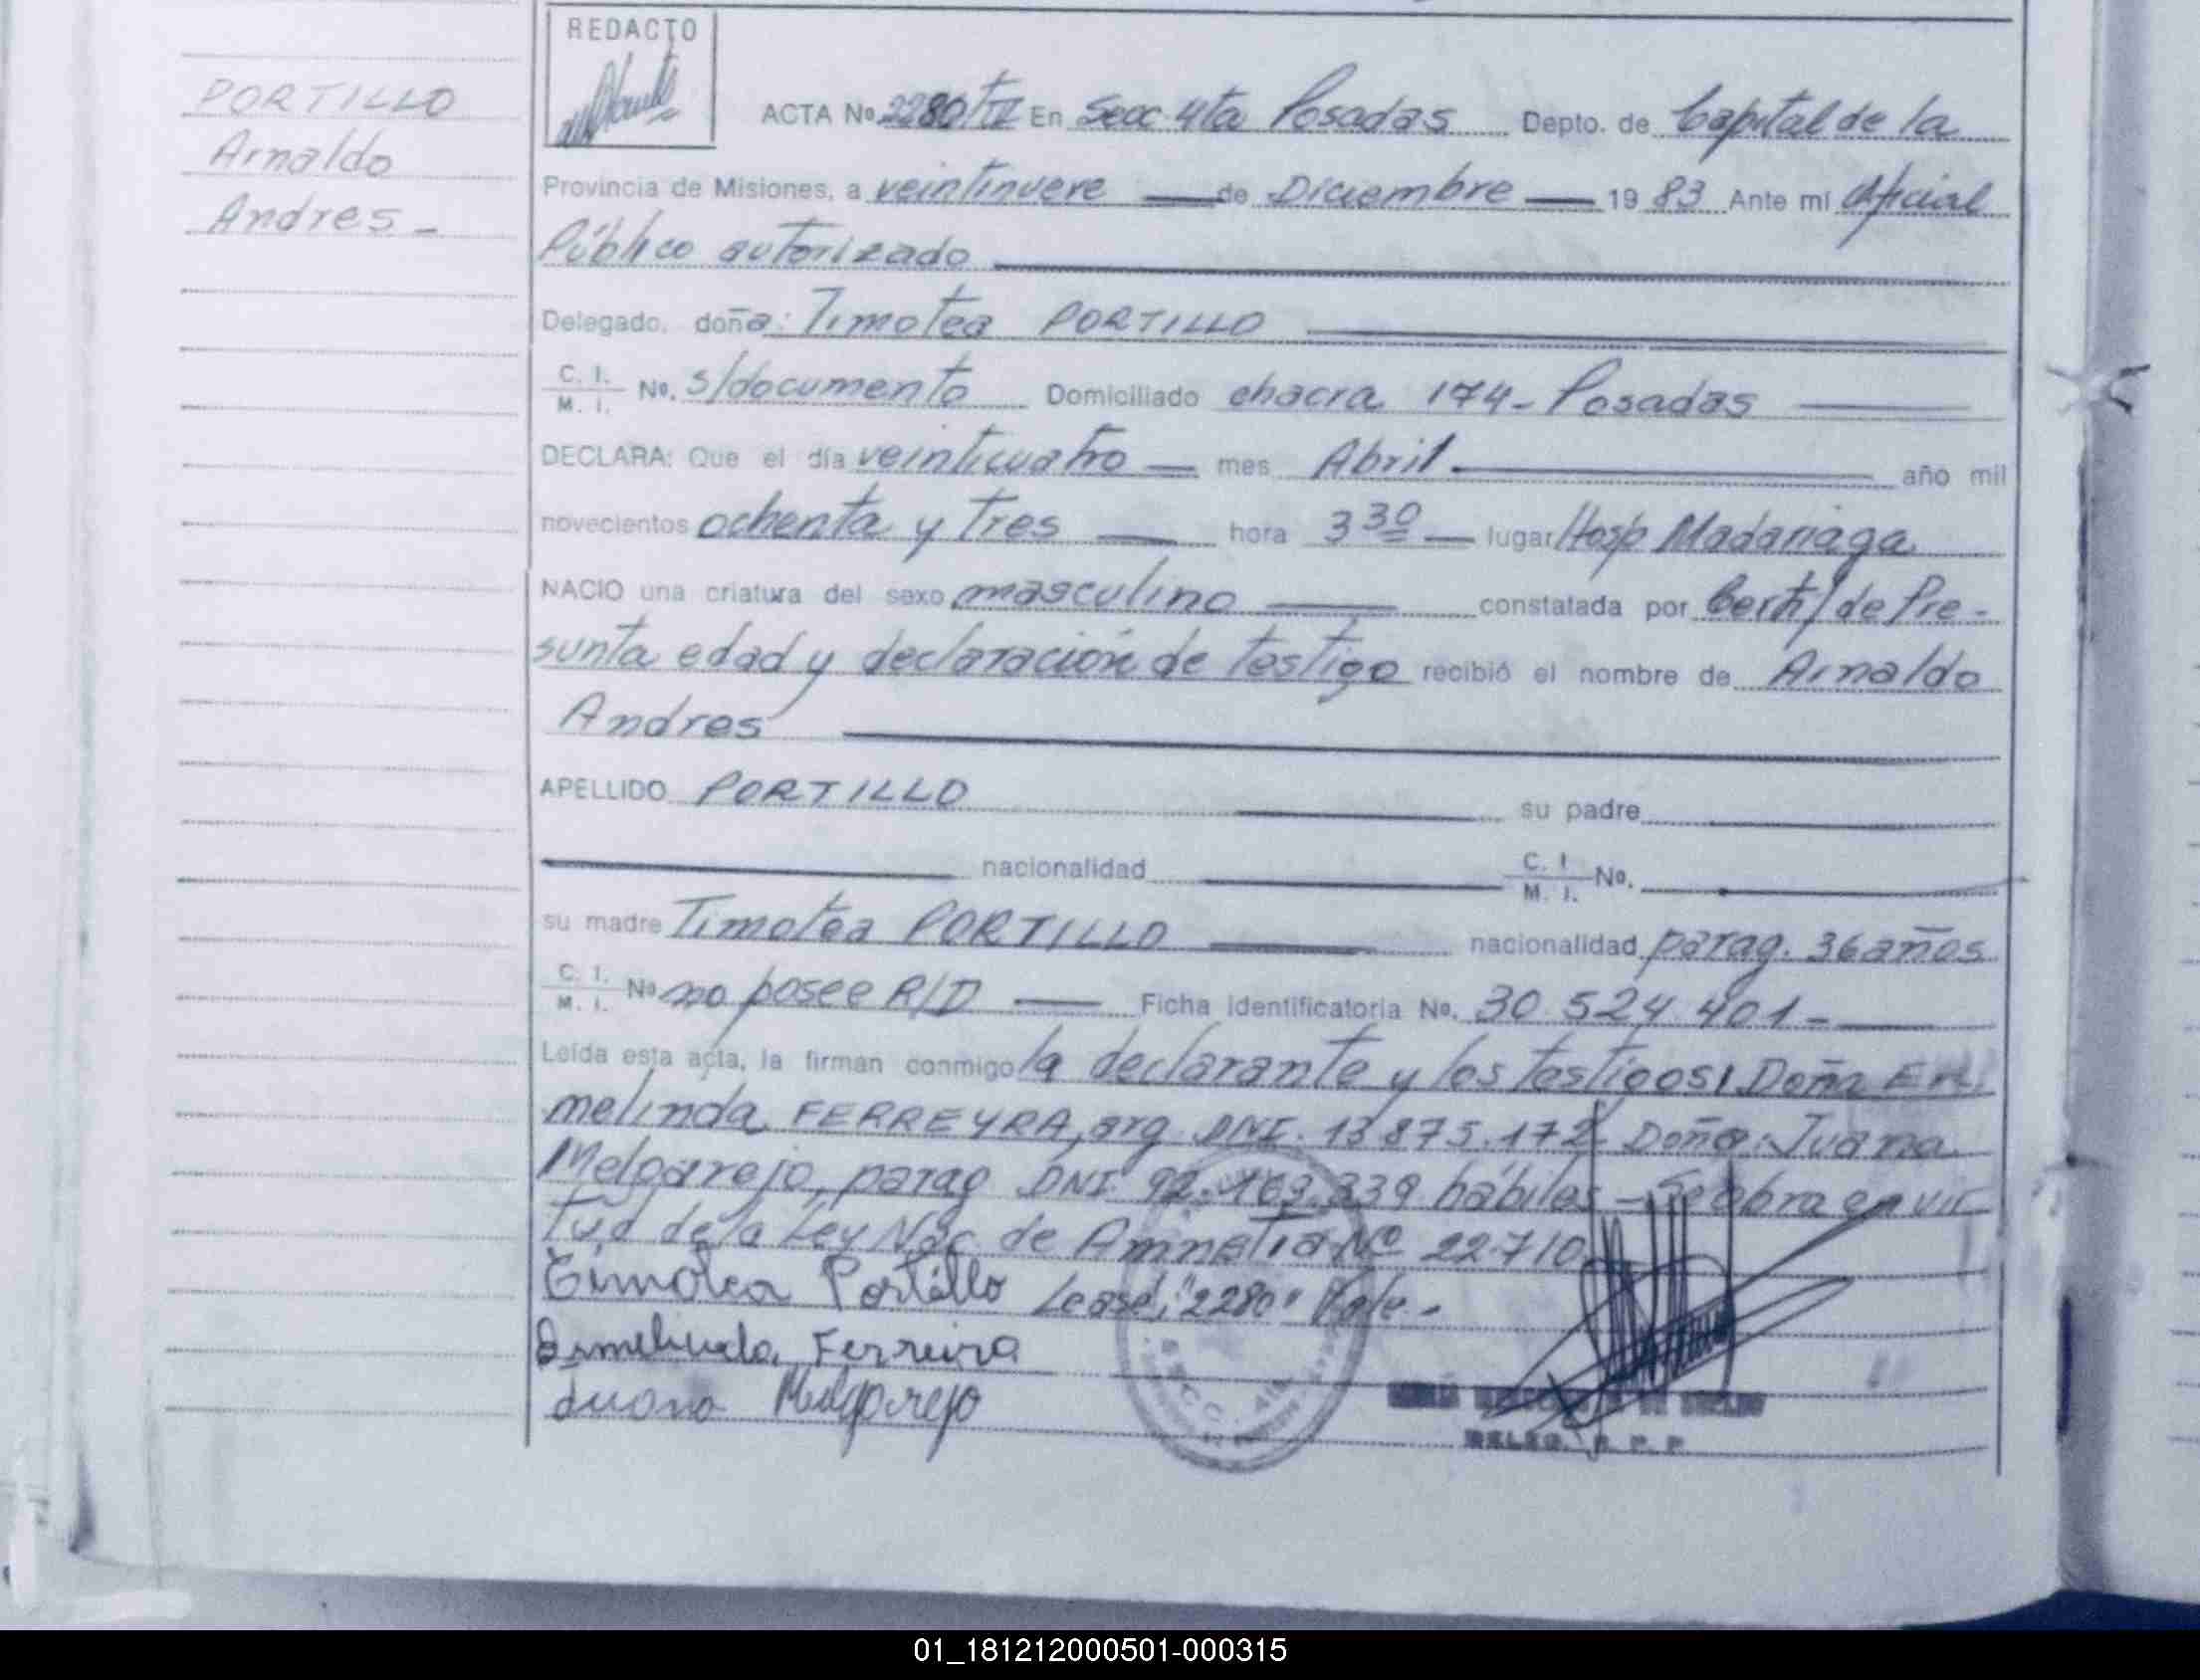 REDACTO
PORTILLO
Arnaldo
Andres -
ACTA No 2280/ En Secc 4ta Posadas Depto. de Capital de la
Provincia de Misiones, a veintinueve de Diciembre 19 83 Ante mi Oficial
Público autorizado
Delegado, doña: Timotea PORTILLO
C. I. M. I. No. s/documento Domiciliado chacra 174- Posadas
DECLARA: Que el día veinticuatro mes Abril año mil
novecientos ochenta y tres hora 3 30 lugar Hosp Madariaga
NACIO una criatura del sexo masculino constatada por Certf/ de Pre-
sunta edad y declaración de testigo recibió el nombre de Arnaldo
Andres
APELLIDO PORTILLO su padre
nacionalidad C. I. M. I. No.
su madre Timotea PORTILLO nacionalidad parag. 36 años
C. I. M. I. No no posee R/D Ficha identificatoria No. 30.524.401-
Leída esta acta, la firman conmigo la declarante y los testigos: Doña Er
melinda FERREYRA, arg DNI. 13.875.172 Doña: Juana
Melgarejo, parag DNI 92.163.339 hábiles - Se labra en vir
tud de la Ley Nac de Amnistia Nº 22.710
Timotea Portillo Lease: "2280" Vale.-
Ermelinda Ferreira
Juana Melgarejo
DELEG. R. P. P.
01_181212000501-000315